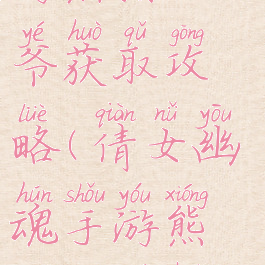 yé huò qǔ gōng
爷获取攻
lüè qiàn nǚ yōu
略(倩女幽
hún shǒu yóu xióng
魂手游熊